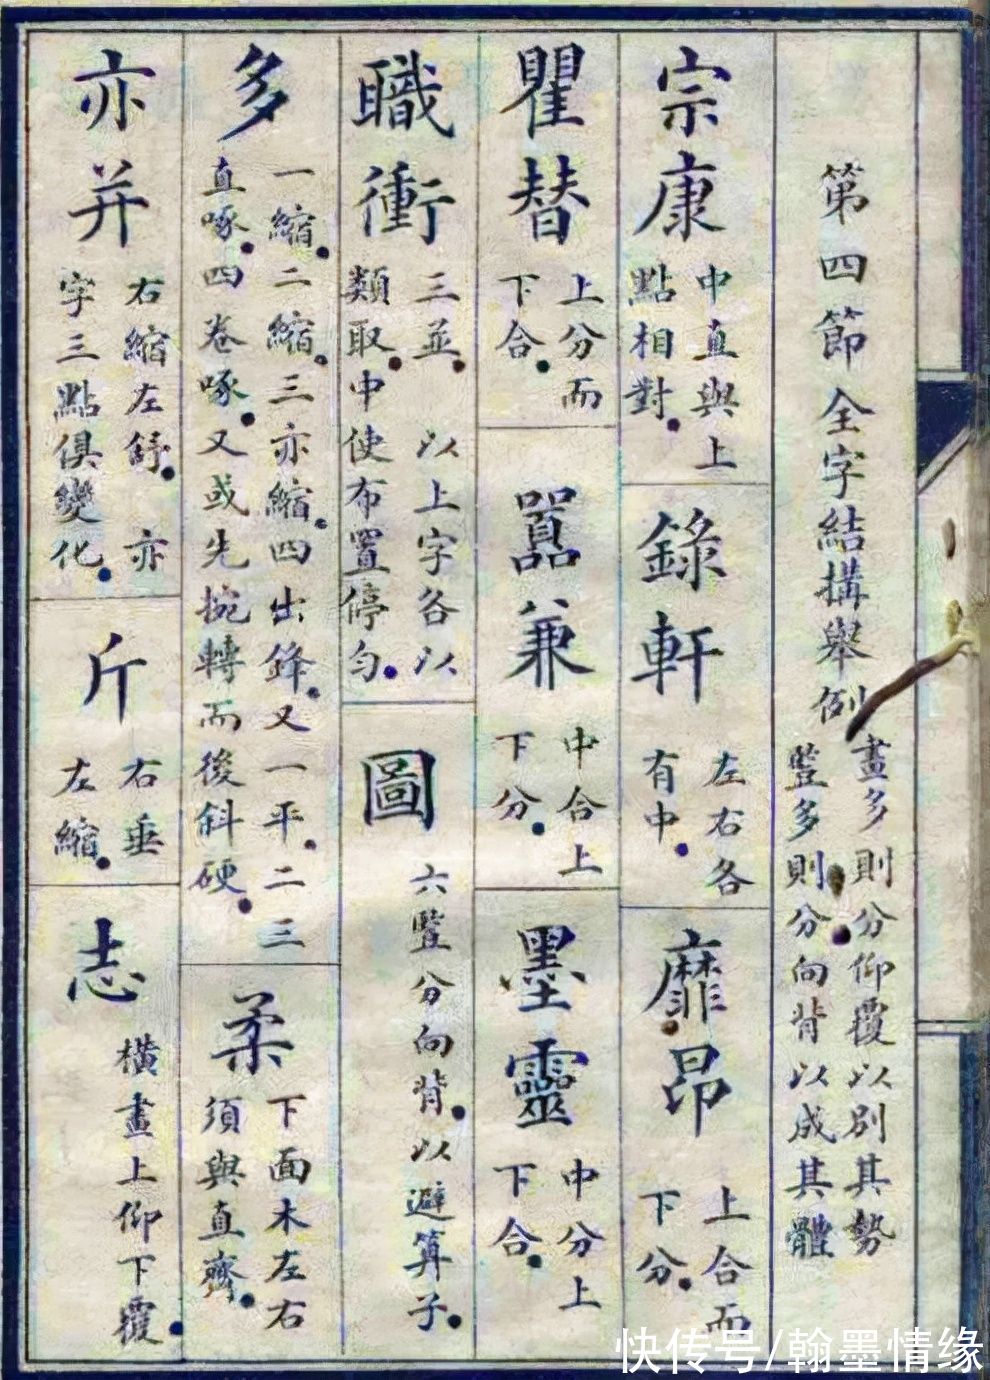 第四節全字結構舉例
畫多則分仰覆以別其勢
豎多則分向背以成其體
宗康
中直與上
點相對。
錄軒
左右各
有中。
靡昂
上合而
下分。
瞿替
上分而
下合。
囂兼
中合上
下分。
墨靈
中分上
下合。
職衝
三並。以上字各以
類取。中使布置停勻。
圖
六豎分向背。以避算子。
多
一縮。二縮。三亦縮。四出鋒。又一平。二三
直啄。四卷啄。又或先捥轉而後斜硬。
柔
下面木左右
須與直齊。
亦并
右縮左舒。亦
字三點俱變化。
斤
右垂
左縮。
志
橫畫上仰下覆。
快传号/翰墨情缘